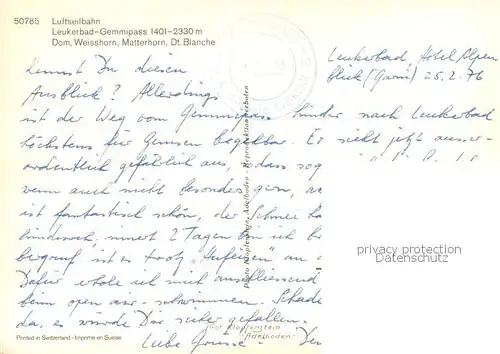 50785 Luftseilbahn
Leukerbad-Gemmipass 1401-2330 m
Dom, Weisshorn, Matterhorn, Dt. Blanche
Leukerbad, Hotel Alpen
blick (Garni) 25.2.76
Kennst Du diesen
Ausblick? Allerdings
ist der Weg vom Gemmipass hinter nach Leukerbad
höchstens für Gemsen begehbar. Es sieht jetzt ausser-
ordentlich gefährlich aus, sodass sog
wenn auch nicht besonders gern,
ist fantastisch schön, der Schnee
innert 2 Tagen bin ich
bergauf ist es trotz "Aufeisen" an
Dafür erhole ich mich anschliessend
beim open air-schwimmen. Schade
da, es würde Dir sicher gefallen.
Liebe Grüsse - Dein
Photo Klopfenstein, Adelboden - Reproduktion verboten
Fot Klopfenstein
Adelboden
privacy protection
Datenschutz
Printed in Switzerland - Imprimé en Suisse